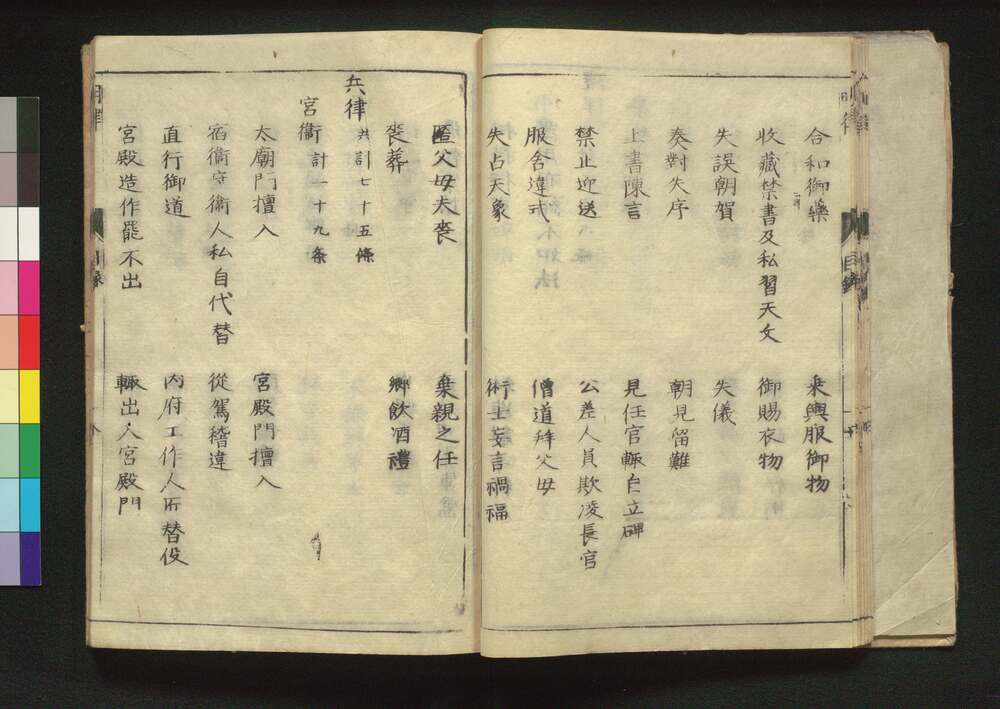 合和御藥 乘輿服御物
收藏禁書及私習天文 御賜衣物
失誤朝賀 失儀
奏對失序 朝見留難
上書陳言 見任官輒自立碑
禁止迎送 公差人員欺凌長官
服舍違式 僧道拜父母
失占天象 術士妄言禍福
匿父母夫喪 棄親之任
喪葬 鄉飲酒禮
兵律 共計七十五條
宮衛 計一十九条
太廟門擅入 宮殿門擅入
宿衛守衛人私自代替 從駕稽違
直行御道 內府工作人匠替役
宮殿造作罷不出 輒出入宮殿門
目錄